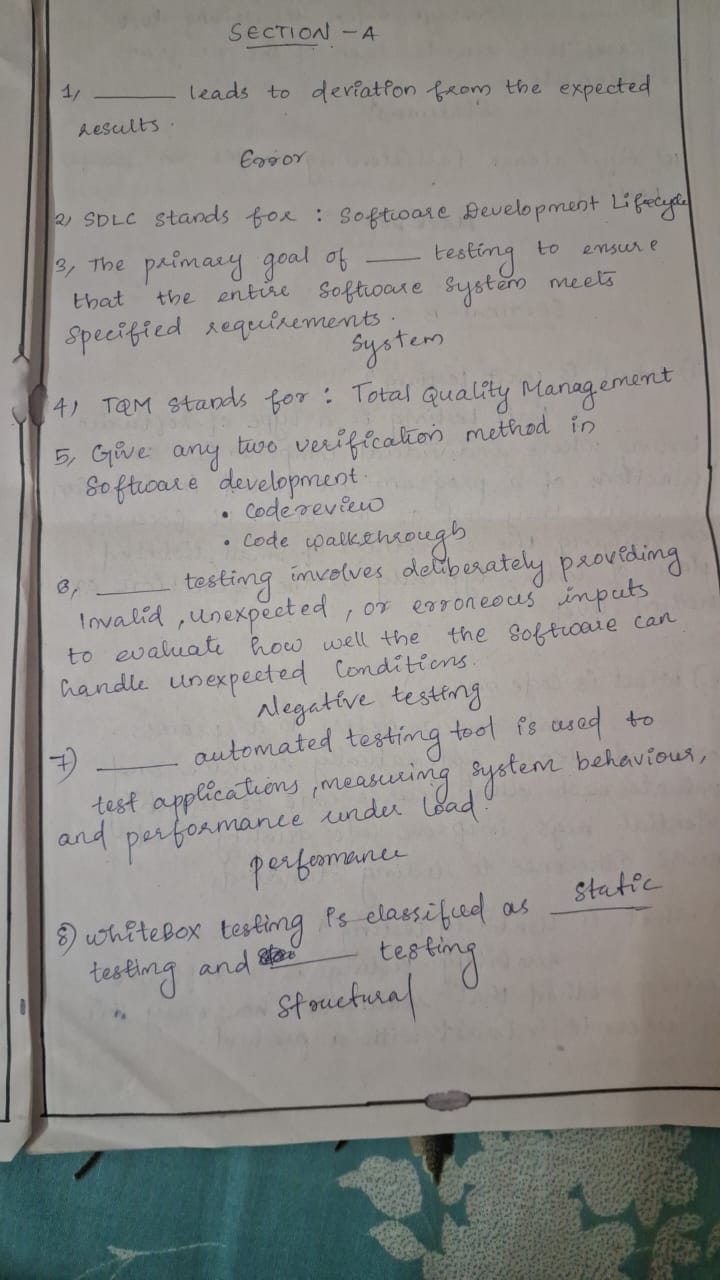 SECTION - A
1, ______ leads to deviation from the expected
results.
Error
2, SDLC stands for : Software Development Lifecycle
3, The primary goal of ____ testing to ensure
that the entire software system meets
specified requirements.
System
4, TQM stands for : Total Quality Management
5, Give any two verification method in
Software development.
• Codereview
• Code walkthrough
6, ______ testing involves deliberately providing
Invalid, unexpected, or erroneous inputs
to evaluate how well the the software can
handle unexpected Conditions.
Negative testing
7) ______ automated testing tool is used to
test applications, measuring system behaviour,
and performance under load.
performance
8) whiteBox testing is classified as static
testing and ______ testing
Structural